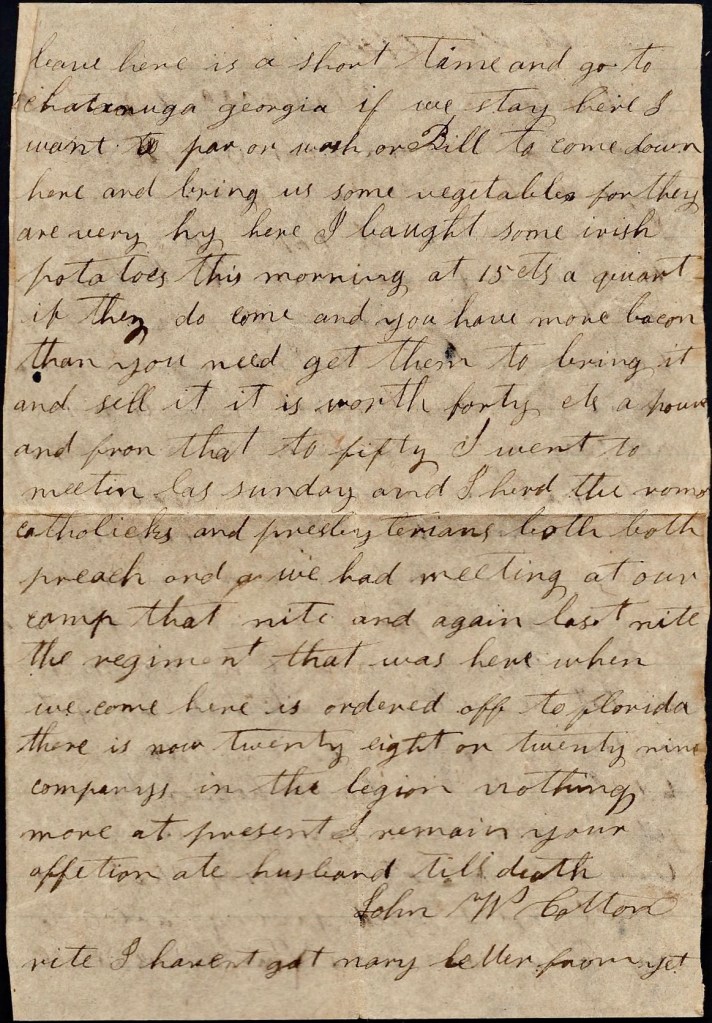 leave here is a short time and go to
chatanuga georgia if we stay here I
want to par or wash or Bill to come down
here and bring us some vegetables for they
are very hy here I baught some irish
potatoes this morning at 15 cts a quart
if they do come and you have more bacon
than you need get them to bring it
and sell it it is worth forty cts a poun
and fron that to fifty I went to
meetin las sunday and I herd the roma
catholicks and presbyterians both both
preach and we had meeting at our
camp that nite and again last nite
the regiment that was here when
we come here is ordered off to florida
there is now twenty eight or twenty nine
companys in the legion nothing
more at present I remain your
affetion ate husband till death
John W Cotton
rite I havent got nary letter from yet